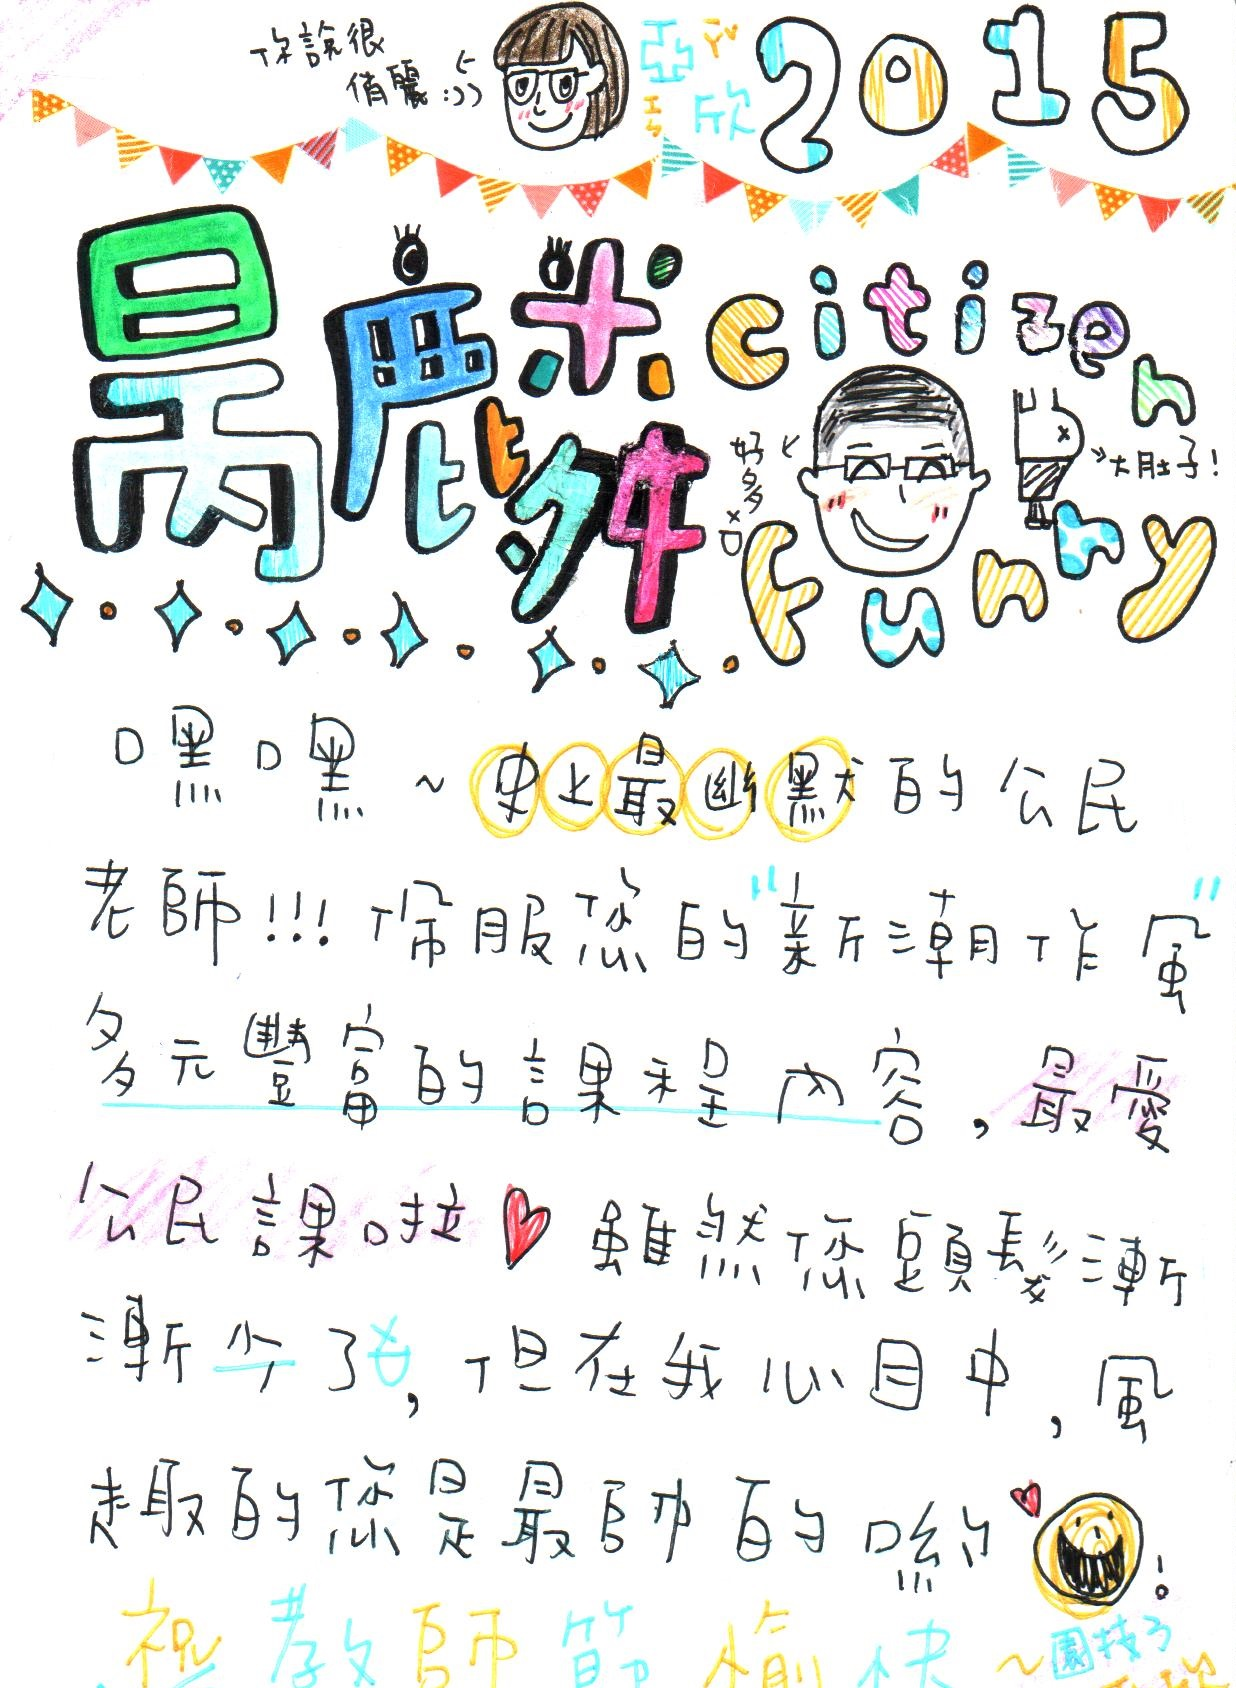 你說很
俏麗:))
亞欣
2015
citizen
funny
大肚子!
嘿嘿~史上最幽默的公民
老師!!!佩服您的"新潮作風"
多元豐富的課程內容,最愛
公民課啦 雖然您頭髮漸
漸少了,但在我心目中,風
趣的您是最帥的喲!
祝教師節愉快~